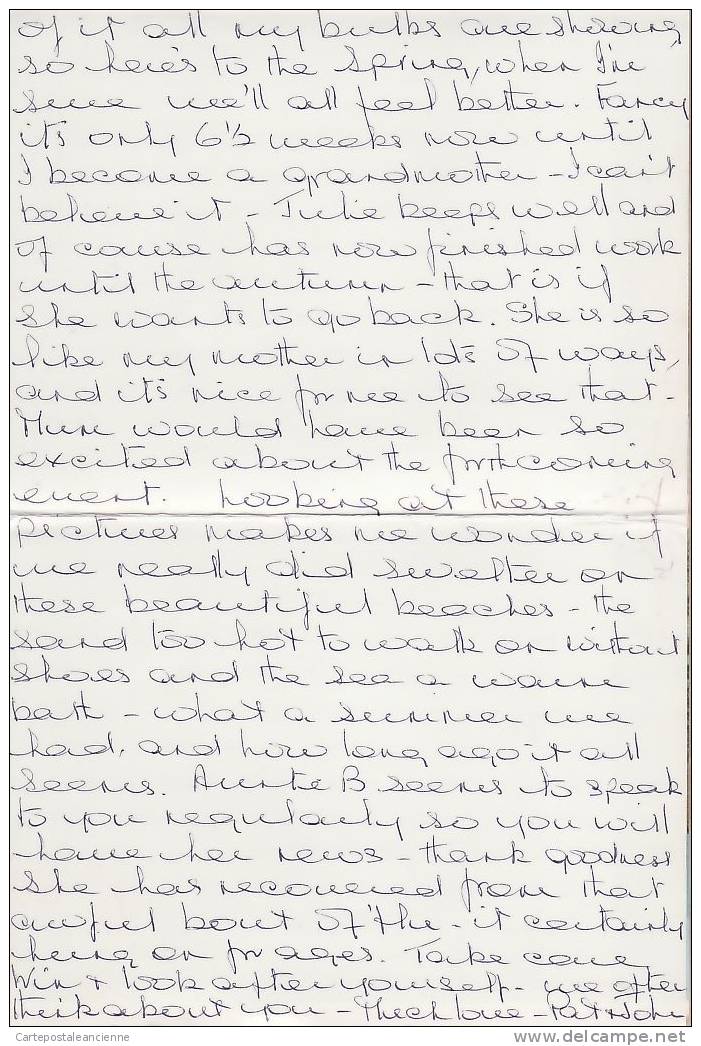 of it all my bulbs are showing
so here's to the Spring, when I'm
sure we'll all feel better. Fancy
it's only 6½ weeks now until
I become a grandmother - I can't
believe it - Julie keeps well and
of course has now finished work
until the autumn - that is if
she wants to go back. She is so
like my mother in lots of ways,
and it's nice for me to see that -
Mum would have been so
excited about the forthcoming
event. Looking at these
pictures makes me wonder if
we really did swelter on
these beautiful beaches - the
sand too hot to walk on without
shoes and the sea a warm
bath - what a summer we
had, and how long ago it all
seems. Auntie B seems to speak
to you regularly so you will
have her news - thank goodness
she has recovered from that
awful bout of 'flu - it certainly
hung on for ages. Take care
Win + look after yourself - we often
think about you - Much love - Pat + John
Cartepostaleancienne